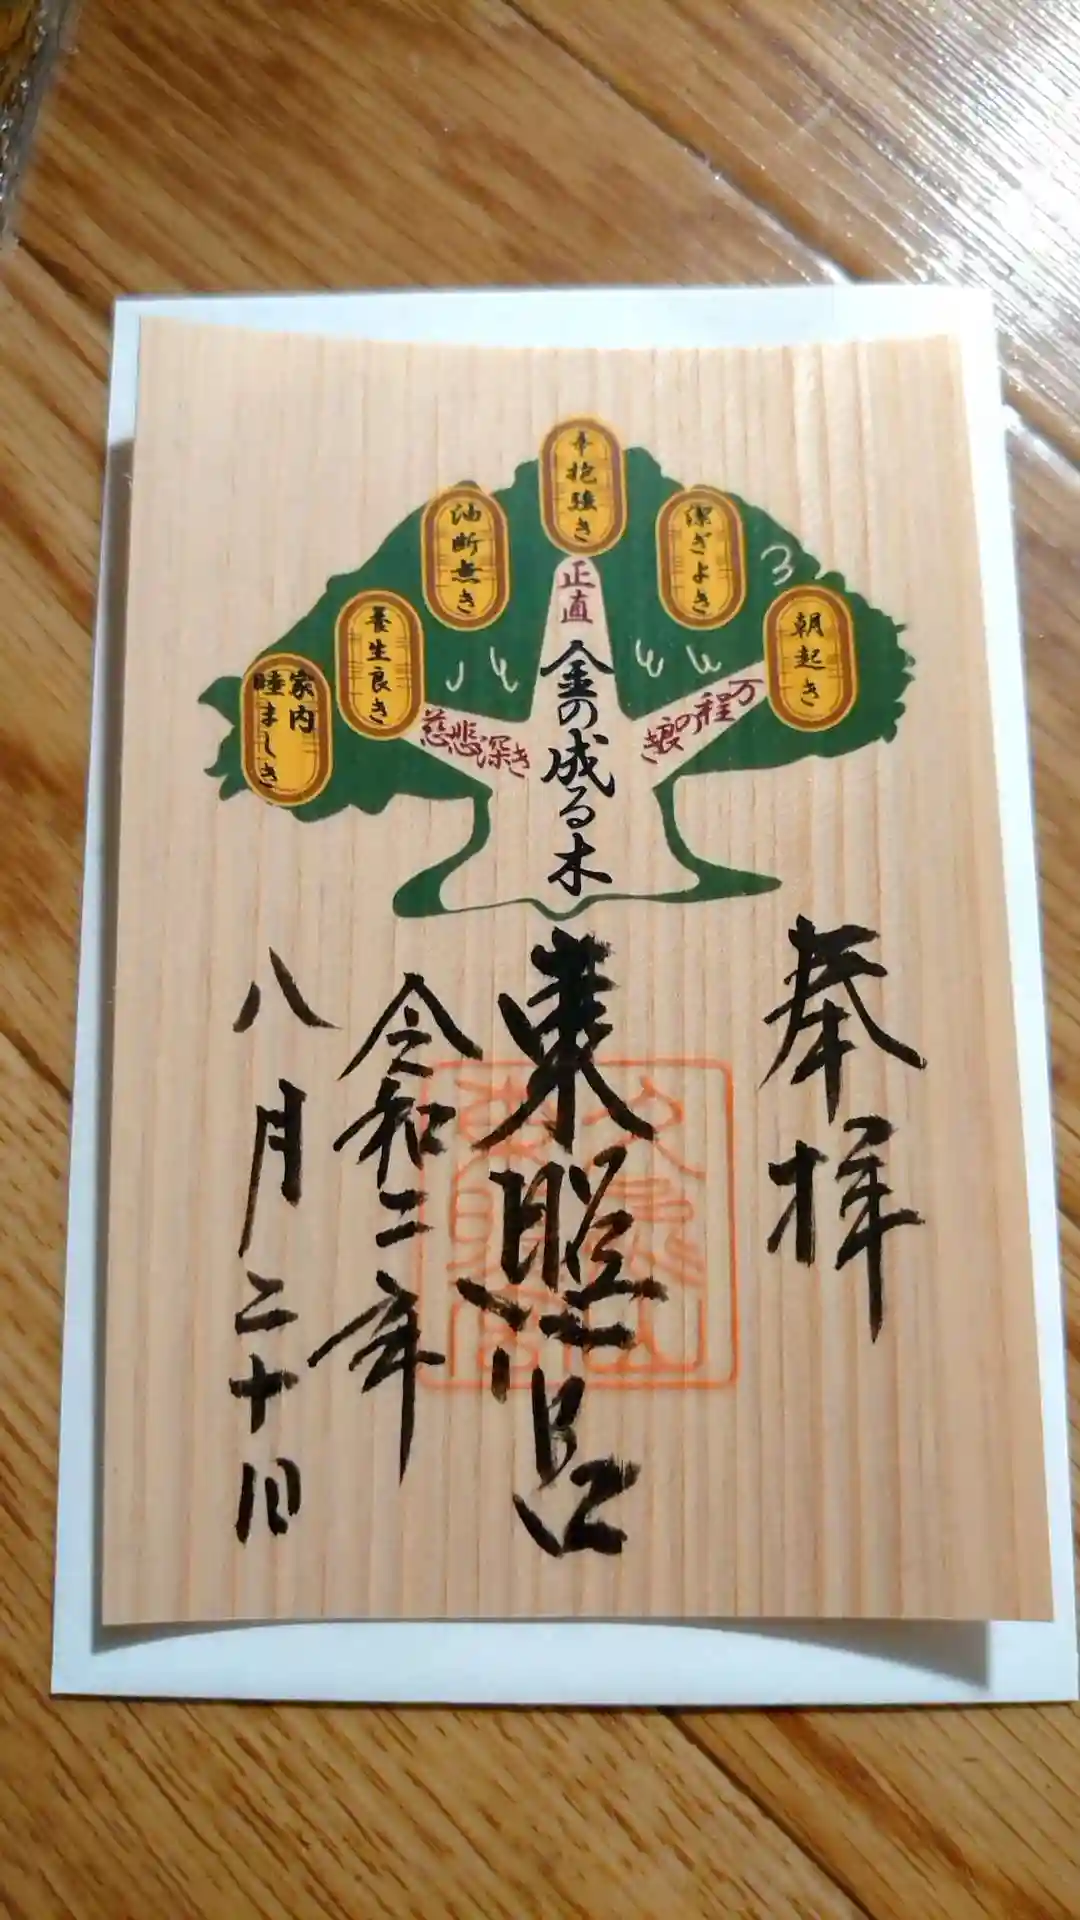 朝起き
潔ぎよき
辛抱強き
油断無き
養生良き
家内
睦ましき
万程の
正直
慈悲深き
金の成る木
奉拝
東照宮
令和二年
八月二十日